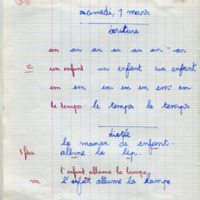 samedi, 1 mars
écriture
en an an en an an an
c un enfant un enfant un enfant
em em em em em em em
le temps le temps le temps
dictée
la maman de enfant
allume la
l'enfant allume la lampe
m l'enfant allume la lampe